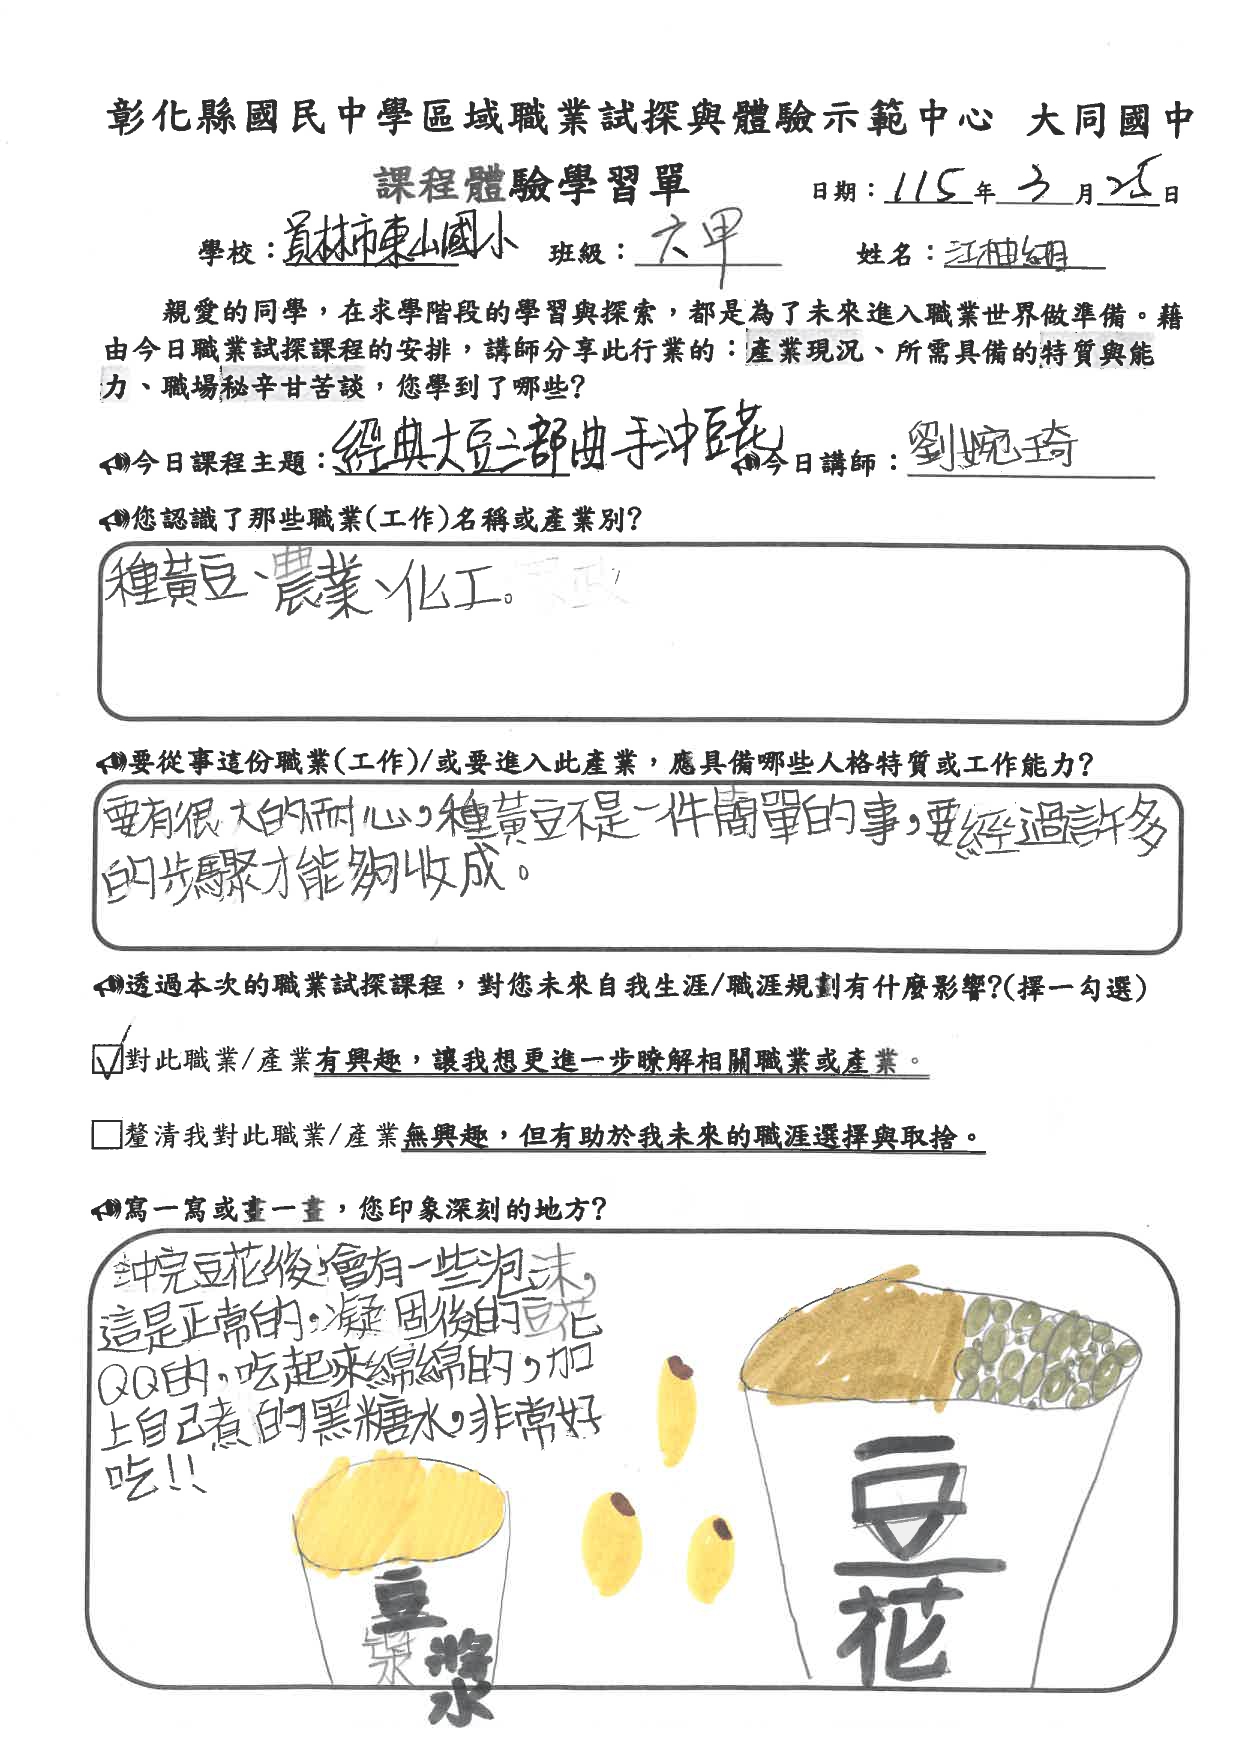 彰化縣國民中學區域職業試探與體驗示範中心 大同國中
課程體驗學習單 日期：115年3月25日
學校：員林市東山國小 班級：六甲 姓名：江柚絹
親愛的同學，在求學階段的學習與探索，都是為了未來進入職業世界做準備。藉
由今日職業試探課程的安排，講師分享此行業的：產業現況、所需具備的特質與能
力、職場秘辛甘苦談，您學到了哪些?
今日課程主題：經典大豆三部曲手沖豆花 今日講師：劉婉琦
您認識了那些職業(工作)名稱或產業別?
種黃豆、農業、化工。
要從事這份職業(工作)/或要進入此產業，應具備哪些人格特質或工作能力?
要有很大的耐心，種黃豆不是一件簡單的事，要經過許多
的步驟才能夠收成。
透過本次的職業試探課程，對您未來自我生涯/職涯規劃有什麼影響?(擇一勾選)
☑對此職業/產業有興趣，讓我想更進一步瞭解相關職業或產業。
□釐清我對此職業/產業無興趣，但有助於我未來的職涯選擇與取捨。
寫一寫或畫一畫，您印象深刻的地方?
沖完豆花後，會有一些泡沫，
這是正常的，凝固後的豆花
QQ的，吃起來綿綿的，加
上自己煮的黑糖水，非常好
吃!!
豆漿
豆花